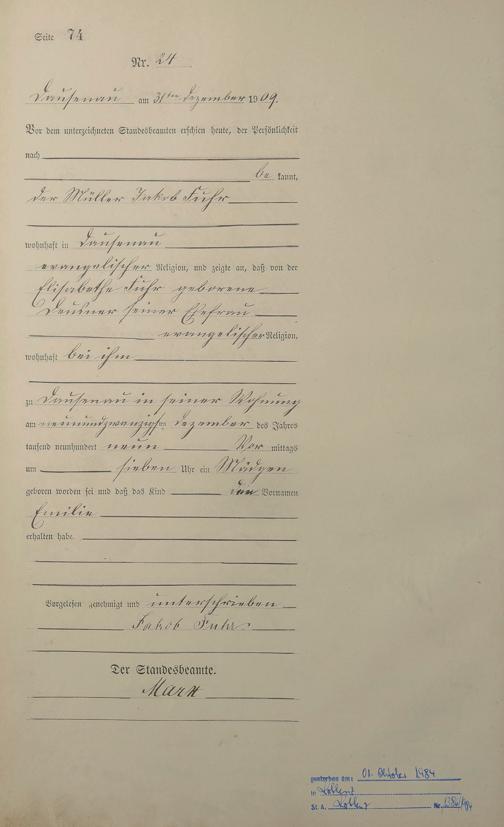 Seite 74
Nr. 24
Dausenau am 31ten Dezember 1909.
Vor dem unterzeichneten Standesbeamten erschien heute, der Persönlichkeit
nach
be kannt,
der Müller Jakob Fuhr
wohnhaft in Dausenau
evangelischer Religion, und zeigte an, daß von der
Elisabethe Fuhr geborene
Deusner seiner Ehefrau
evangelischer Religion,
wohnhaft bei ihm
zu Dausenau in seiner Wohnung
am neunundzwanzigsten Dezember des Jahres
tausend neunhundert neun Vor mittags
um sieben Uhr ein Mädchen
geboren worden sei und daß das Kind den Vornamen
Emilie
erhalten habe.
Vorgelesen genehmigt und unterschrieben
Jakob Fuhr
Der Standesbeamte.
Marx
gestorben am: 01. Oktober 1984
in Koblenz
St. A. Koblenz Nr.